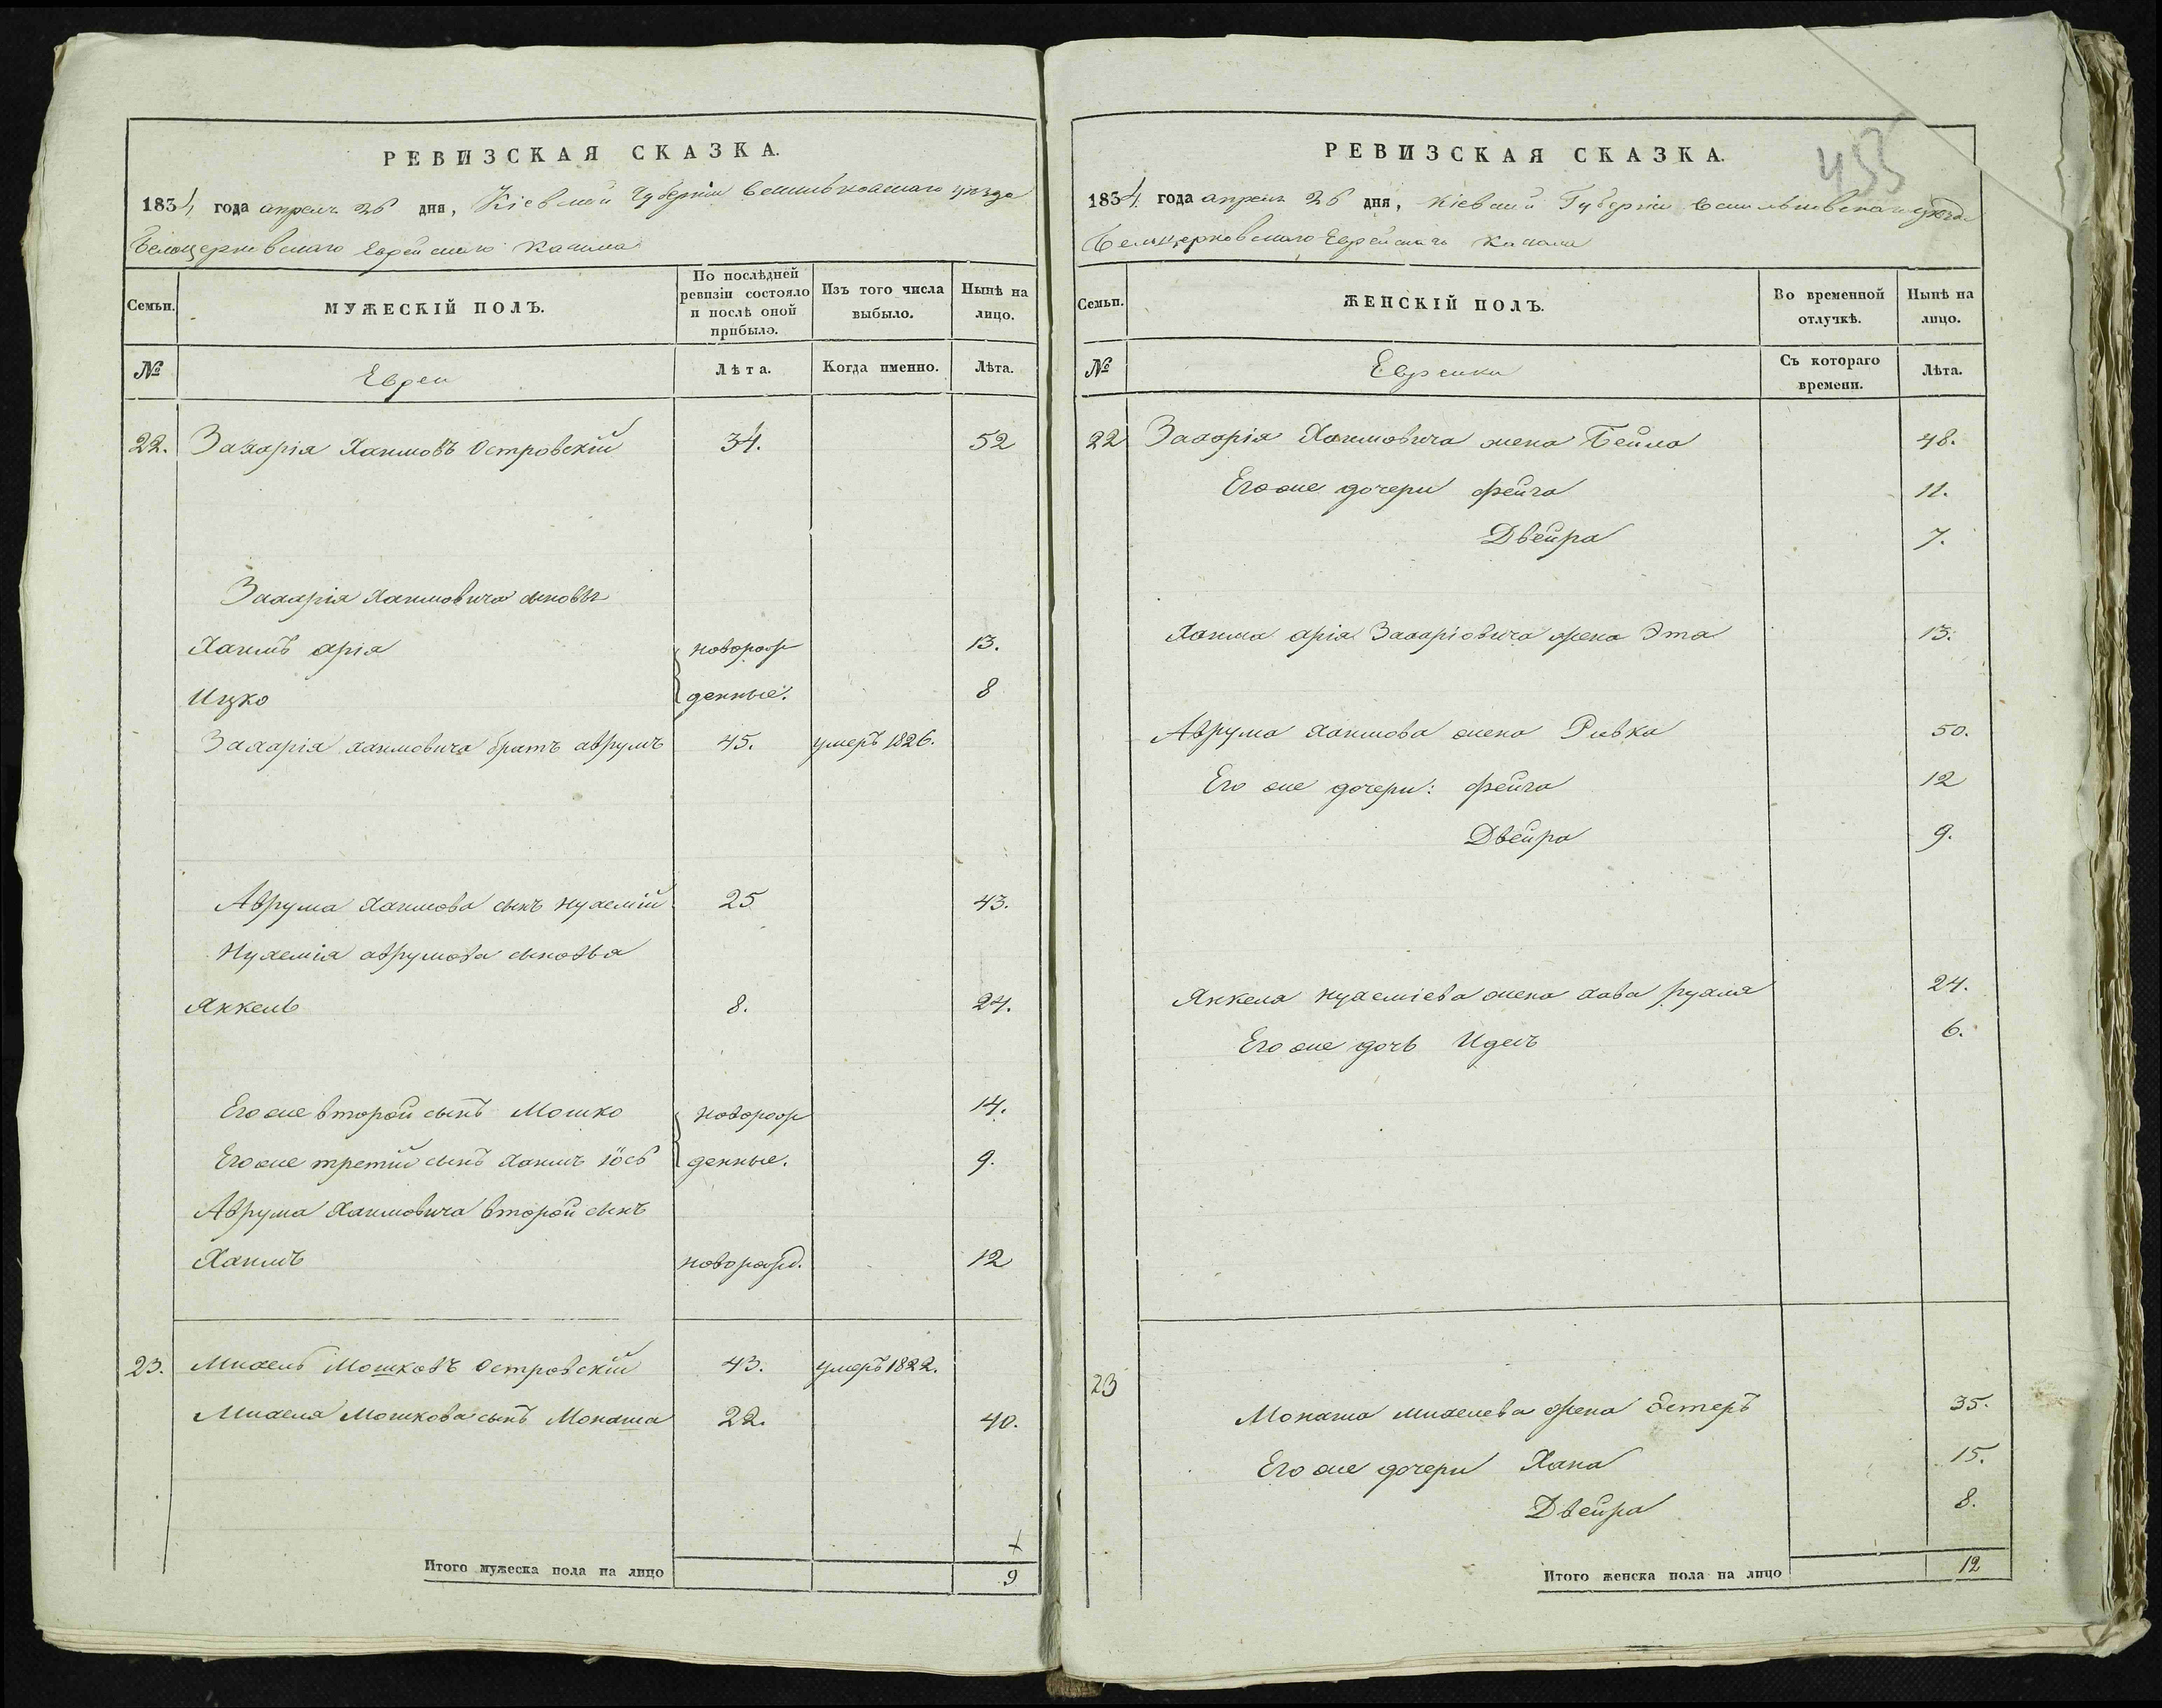 РЕВИЗСКАЯ СКАЗКА.
1834 года апреля 26 дня, Кіевской Губерніи Васильковскаго уезда
Белоцерковскаго Еврейскаго Кагала
Семьи.
МУЖЕСКІЙ ПОЛЪ.
По послѣдней
ревизіи состояло
и послѣ оной
прибыло.
Изъ того числа
выбыло.
Нынѣ на
лицо.
№
Евреи
Лѣта.
Когда именно.
Лѣта.
22. Захарія Хаимовъ Островскій 34. 52
Захарія Хаимовича сыновья
Хаимъ Арія новорож 13.
Ицко денные. 8
Захарія Хаимовича братъ Аврумъ 45. умеръ 1826.
Аврума Хаимова сынъ Нухемій 25 43.
Нухемія Аврумова сыновья
Янкель 8. 24.
Его же второй сынъ Мошко новорож 14.
Его же третій сынъ Хаимъ Іось денные. 9.
Аврума Хаимовича второй сынъ
Хаимъ новорожд. 12
23. Михель Мошковъ Островскій 43. умеръ 1822.
Михеля Мошкова сынъ Монаша 22. 40.
Итого мужеска пола на лицо 9
435
РЕВИЗСКАЯ СКАЗКА.
1834 года апреля 26 дня, Кіевской Губерніи Васильковскаго уезда
Белоцерковскаго Еврейскаго Кагала
Семьи.
ЖЕНСКІЙ ПОЛЪ.
Во временной
отлучкѣ.
Нынѣ на
лицо.
№
Еврейки
Съ котораго
времени.
Лѣта.
22 Захарія Хаимовича жена Бейла 48.
Его же дочери Фейга 11.
Двейра 7.
Хаима Арія Захаріовича жена Эта 13.
Аврума Хаимова жена Ривка 50.
Его же дочери: Фейга 12
Двейра 9.
Янкеля Нухеміева жена Хава Рухля 24.
Его же дочь Идесъ 6.
23
Монаша Михелева жена Естеръ 35.
Его же дочери Хана 15.
Двейра 8.
Итого женска пола на лицо 12